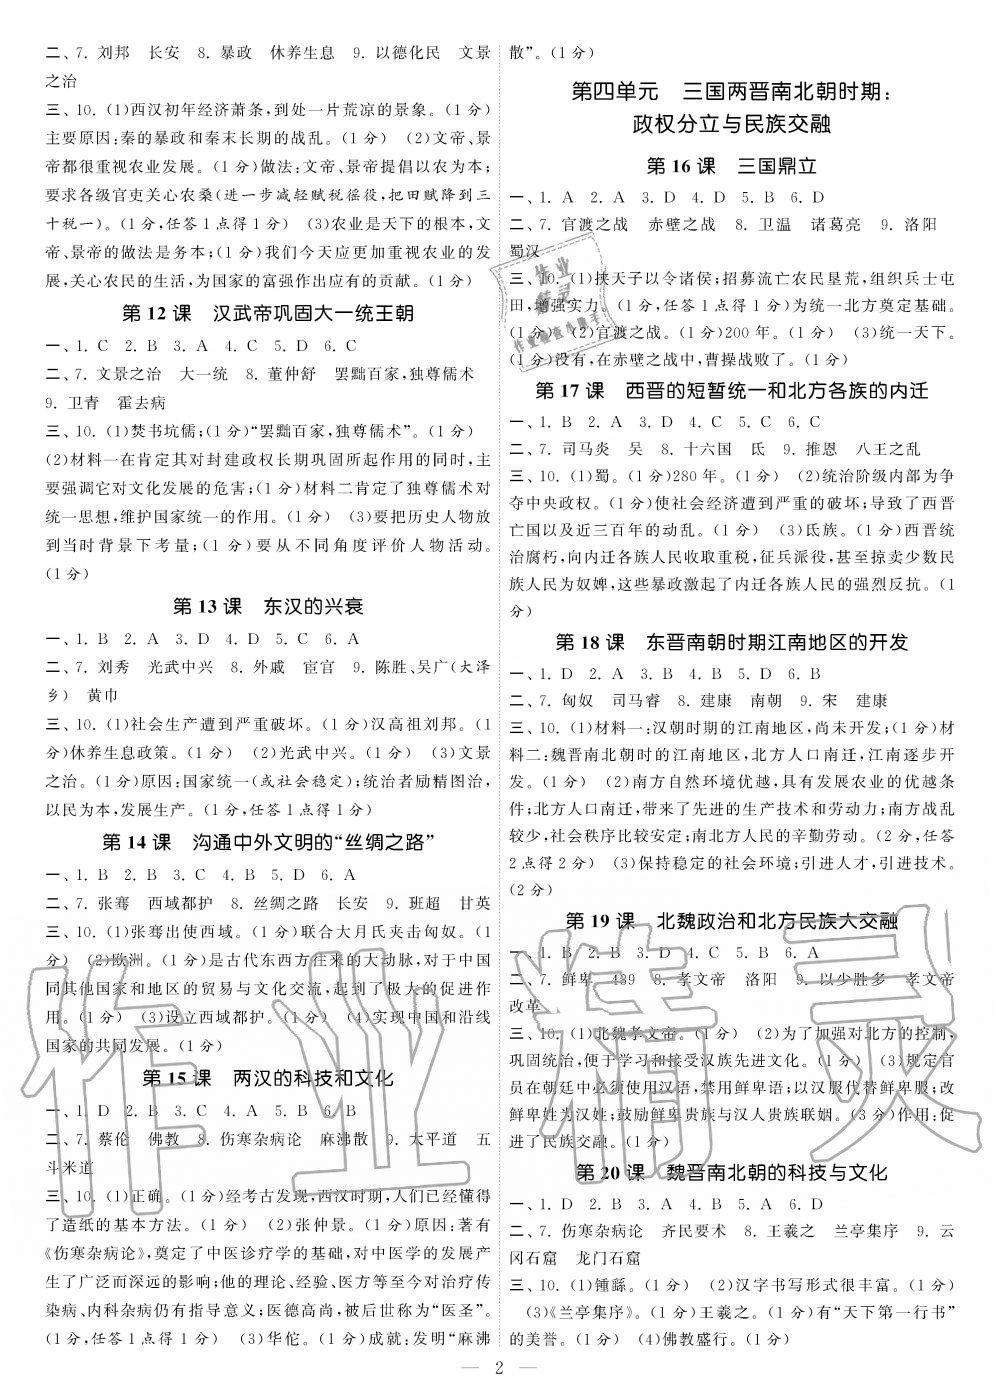 二、7. 刘邦 长安 8. 暴政 休养生息 9. 以德化民 文景
之治
三、10. (1)西汉初年经济萧条,到处一片荒凉的景象。(1分)
主要原因:秦的暴政和秦末长期的战乱。(1分) (2)文帝、景
帝都很重视农业发展。(1分)做法:文帝、景帝提倡以农为本;
要求各级官吏关心农桑(进一步减轻赋税徭役,把田赋降到三
十税一)。(1分,任答1点得1分) (3)农业是天下的根本,文
帝、景帝的做法是务本;(1分)我们今天应更加重视农业的发
展,关心农民的生活,为国家的富强作出应有的贡献。(1分)
第12课 汉武帝巩固大一统王朝
一、1. C 2. B 3. A 4. C 5. C 6. C
二、7. 文景之治 大一统 8. 董仲舒 罢黜百家,独尊儒术
9. 卫青 霍去病
三、10. (1)焚书坑儒;(1分)“罢黜百家,独尊儒术”。(1分)
(2)材料一在肯定其对封建政权长期巩固所起作用的同时,主
要强调它对文化发展的危害;(1分)材料二肯定了独尊儒术对
统一思想,维护国家统一的作用。(1分) (3)要把历史人物放
到当时背景下考量;(1分)要从不同角度评价人物活动。
(1分)
第13课 东汉的兴衰
一、1. B 2. A 3. D 4. D 5. C 6. A
二、7. 刘秀 光武中兴 8. 外戚 宦官 9. 陈胜、吴广(大泽
乡) 黄巾
三、10. (1)社会生产遭到严重破坏。(1分)汉高祖刘邦。(1
分)休养生息政策。(1分) (2)光武中兴。(1分) (3)文景
之治。(1分)原因:国家统一(或社会稳定);统治者励精图治,
以民为本,发展生产。(1分,任答1点得1分)
第14课 沟通中外文明的“丝绸之路”
一、1. B 2. B 3. B 4. C 5. D 6. A
二、7. 张骞 西域都护 8. 丝绸之路 长安 9. 班超 甘英
三、10. (1)张骞出使西域。(1分)联合大月氏夹击匈奴。(1
分) (2)欧洲。(1分)是古代东西方往来的大动脉,对于中国
同其他国家和地区的贸易与文化交流,起到了极大的促进作
用。(1分) (3)设立西域都护。(1分) (4)实现中国和沿线
国家的共同发展。(1分)
第15课 两汉的科技和文化
一、1. D 2. B 3. C 4. A 5. B 6. B
二、7. 蔡伦 佛教 8. 伤寒杂病论 麻沸散 9. 太平道 五
斗米道
三、10. (1)正确。(1分)经考古发现,西汉时期,人们已经懂得
了造纸的基本方法。(1分) (2)张仲景。(1分)原因:著有
《伤寒杂病论》,奠定了中医诊疗学的基础,对中医学的发展产
生了广泛而深远的影响;他的理论、经验、医方等至今对治疗传
染病、内科杂病仍有指导意义;医德高尚,被后世称为“医圣”。
(1分,任答1点得1分) (3)华佗。(1分)成就:发明“麻沸
散”。(1分)
第四单元 三国两晋南北朝时期:
政权分立与民族交融
第16课 三国鼎立
一、1. A 2. A 3. D 4. D 5. B 6. D
二、7. 官渡之战 赤壁之战 8. 卫温 诸葛亮 9. 洛阳
蜀汉
三、10. (1)挟天子以令诸侯;招募流亡农民垦荒,组织兵士屯
田,增强实力。(1分,任答1点得1分)为统一北方奠定基础。
(1分) (2)官渡之战。(1分)200年。(1分) (3)统一天下。
(1分)没有,在赤壁之战中,曹操战败了。(1分)
第17课 西晋的短暂统一和北方各族的内迁
一、1. B 2. A 3. D 4. C 5. C 6. C
二、7. 司马炎 吴 8. 十六国 氐 9. 推恩 八王之乱
三、10. (1)蜀。(1分)280年。(1分) (2)统治阶级内部为争
夺中央政权。(1分)使社会经济遭到严重的破坏;导致了西晋
亡国以及近三百年的动乱。(1分) (3)氐族。(1分)西晋统
治腐朽,向内迁各族人民收取重税,征兵派役,甚至掠卖少数民
族人民为奴婢,这些暴政激起了内迁各族人民的强烈反抗。(1
分)
第18课 东晋南朝时期江南地区的开发
一、1. D 2. A 3. B 4. B 5. D 6. B
二、7. 匈奴 司马睿 8. 建康 南朝 9. 宋 建康
三、10. (1)材料一:汉朝时期的江南地区,尚未开发;(1分)材
料二:魏晋南北朝时的江南地区,北方人口南迁,江南逐步开
发。(1分) (2)南方自然环境优越,具有发展农业的优越条
件;北方人口南迁,带来了先进的生产技术和劳动力;南方战乱
较少,社会秩序比较安定;南北方人民的辛勤劳动。(2分,任答
2点得2分) (3)保持稳定的社会环境;引进人才,引进技术。
(2分)
第19课 北魏政治和北方民族大交融
一、1. B 2. B 3. D 4. B 5. B 6. A
二、7. 鲜卑 439 8. 孝文帝 洛阳 9. 以少胜多 孝文帝
改革
三、10. (1)北魏孝文帝。(1分) (2)为了加强对北方的控制,
巩固统治,便于学习和接受汉族先进文化。(1分) (3)规定官
员在朝廷中必须使用汉语,禁用鲜卑语;以汉服代替鲜卑服;改
鲜卑姓为汉姓;鼓励鲜卑贵族与汉人贵族联姻。(3分)作用:促
进了民族交融。(1分)
第20课 魏晋南北朝的科技与文化
一、1. D 2. B 3. A 4. B 5. A 6. D
二、7. 伤寒杂病论 齐民要术 8. 王羲之 兰亭集序 9. 云
冈石窟 龙门石窟
三、10. (1)锺繇。(1分) (2)汉字书写形式很丰富。(1分)
(3)《兰亭集序》。(1分)王羲之。(1分)有“天下第一行书”
的美誉。(1分) (4)佛教盛行。(1分)
— 2 —
作业精灵